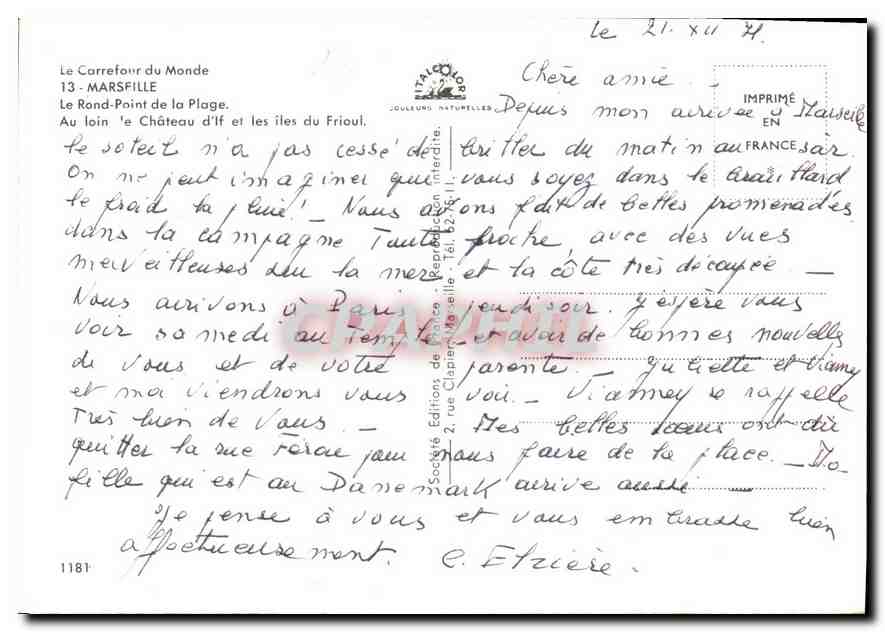 le 21. XII 71.
Le Carrefour du Monde
13 - MARSEILLE
Le Rond-Point de la Plage.
Au loin le Château d'If et les îles du Frioul.
ITALCOLOR
COULEURS NATURELLES
IMPRIMÉ
EN
FRANCE
Chère amie.
Depuis mon arrivée à Marseille
le soleil n'a pas cessé de briller du matin au soir.
On ne peut imaginer que vous soyez dans le brouillard
le froid la pluie! - Nous avons fait de belles promenades
dans la campagne toute proche, avec des vues
merveilleuses sur la mer et la côte très découpée. -
Nous arrivons à Paris jeudi soir. J'espère vous
voir samedi au temple - et avoir de bonnes nouvelles
de vous et de votre parente - Juliette et Vianney
et moi viendrons vous voir. - Vianney se rappelle
très bien de vous. - Mes belles soeurs ont dû
quitter la rue pour nous faire de la place. - Ma
fille qui est au Danemark arrive aussi
Je pense à vous et vous embrasse bien
affectueusement. C.
Société Editions de France - Reproduction interdite.
2, rue Clapier, Marseille - Tél. 62-76-11.
CPAPHIL
1181